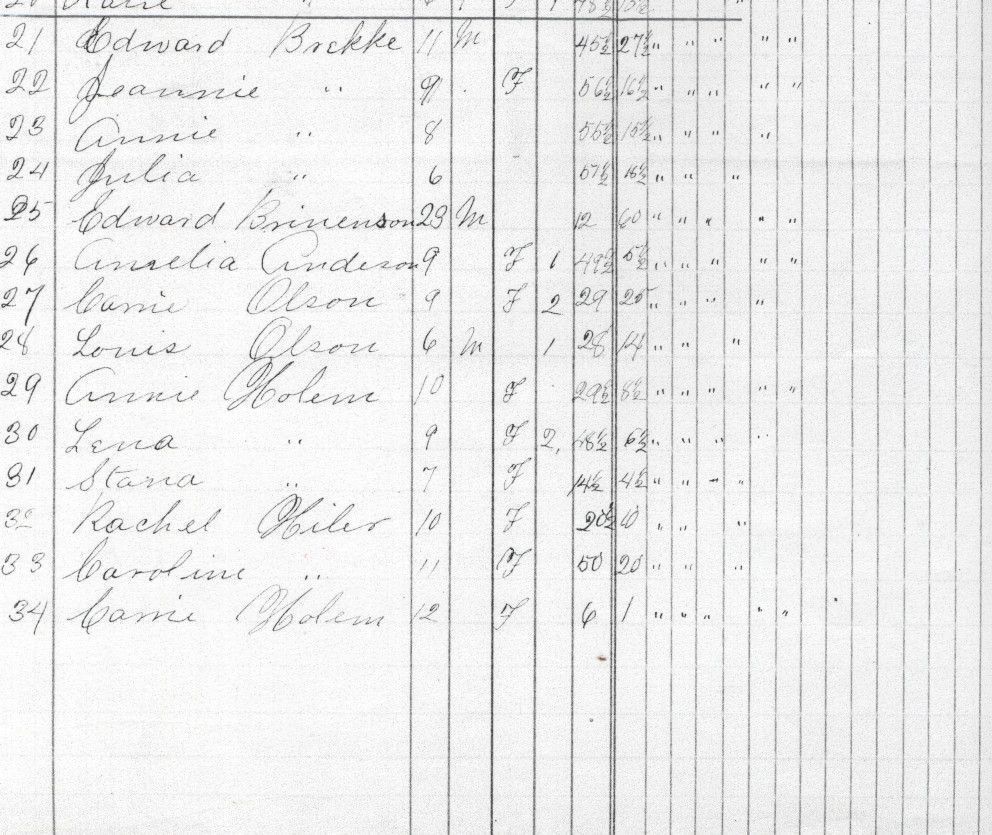 21 Edward Brekke 11 M 45½ 27½ " " " " "
22 Jeannie " 9 F 56½ 16½ " " " " "
23 Annie " 8 56½ 15½ " " " "
24 Julia " 6 57½ 18½ " " "
25 Edward 23 M 12 60 " " " " "
26 Amelia Anderson 9 F 1 49½ 5½ " " " " "
27 Carrie Olson 9 F 2 29 25 " " " "
28 Louis Olson 6 M 1 28 14 " " "
29 Annie Holem 10 F 29½ 8½ " " " " "
30 Lena " 9 F 2, 48½ 6½ " " " "
31 Stana " 7 F 14½ 4½ " " " "
32 Rachel Hiler 10 F 20½ 10 " " "
33 Caroline " 11 F 50 20 " " "
34 Carrie Holem 12 F 6 1 " " " " "